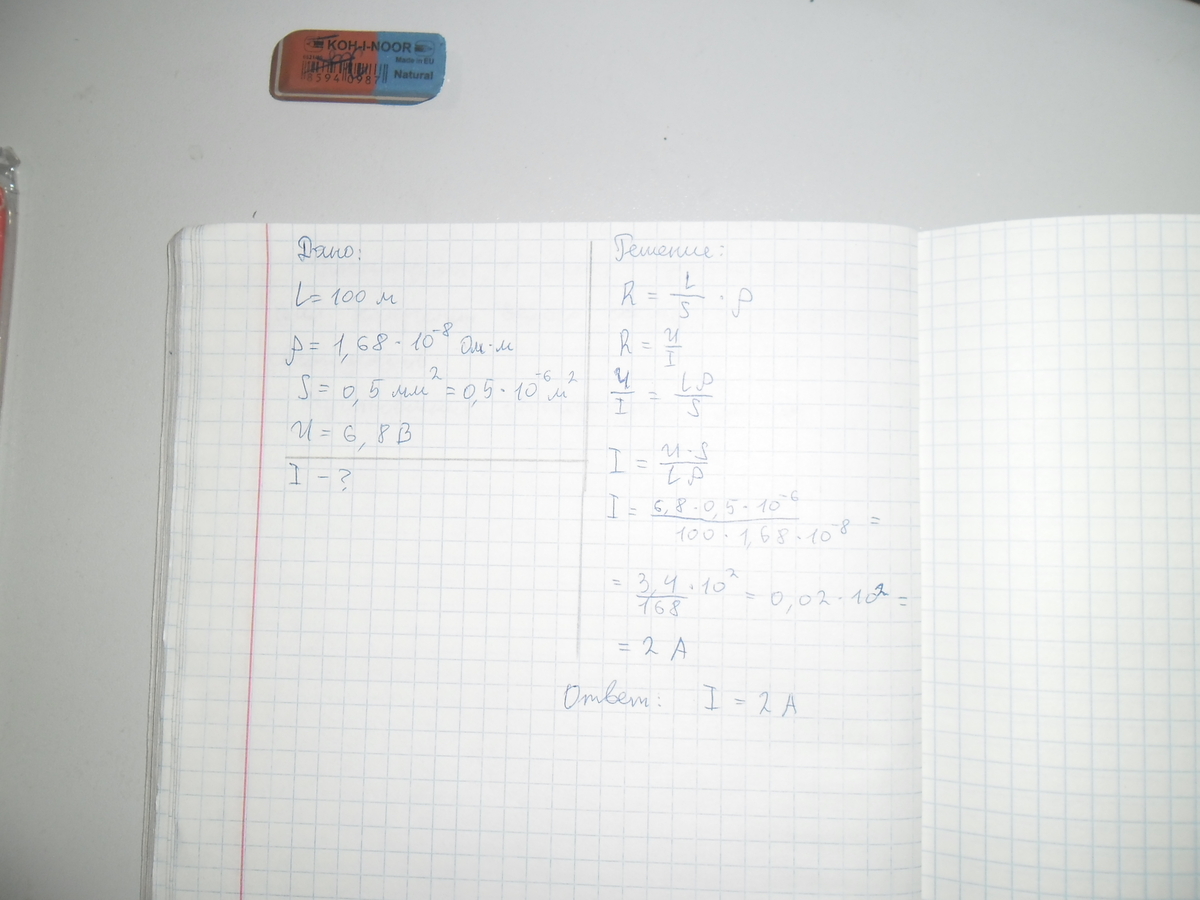 KOH-I-NOOR
Made in EU
Natural
8594 0987
Дано:
L = 100 м
ρ = 1,68 · 10⁻⁸ Ом·м
S = 0,5 мм² = 0,5 · 10⁻⁶ м²
U = 6,8 В
I - ?
Решение:
R = L/S · ρ
R = U/I
U/I = Lρ/S
I = U·S/Lρ
I = 6,8 · 0,5 · 10⁻⁶ / 100 · 1,68 · 10⁻⁸ =
= 3,4/168 · 10² = 0,02 · 10² =
= 2 А
Ответ: I = 2 А